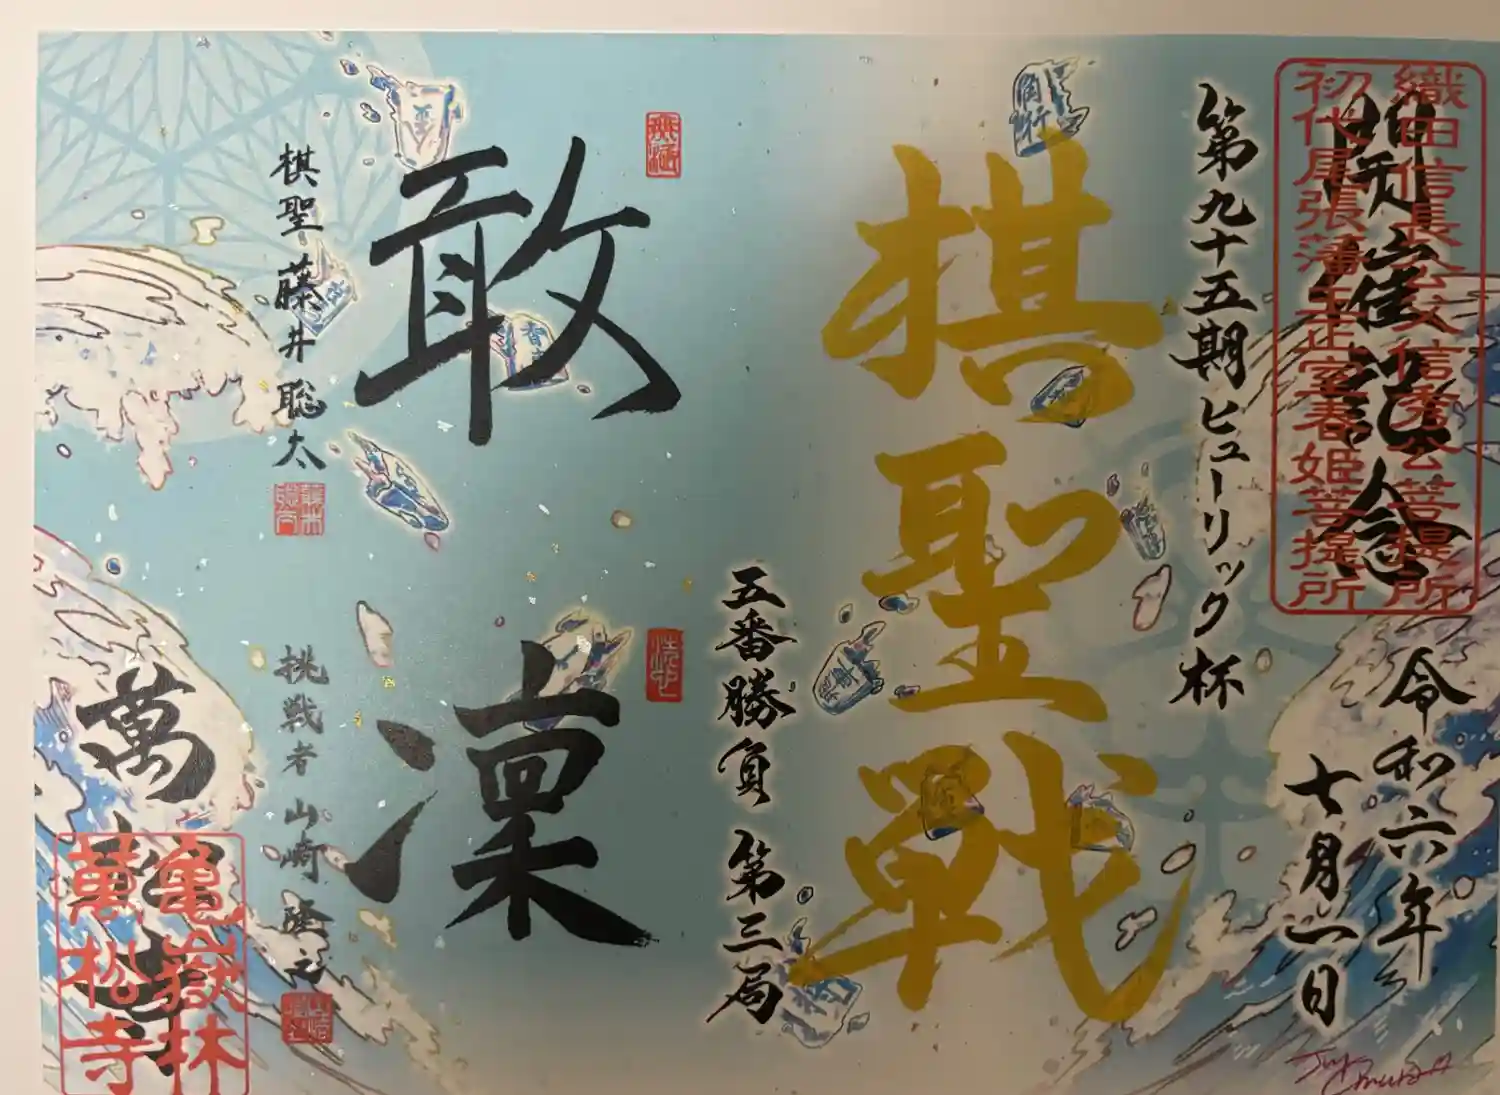 織田信長公父信秀公菩提所
初代尾張藩主正室春姫菩提所
開催記念
令和六年
七月一日
第九十五期ヒューリック杯
棋聖戦
五番勝負 第三局
敢
凜
棋聖 藤井聡太
挑戦者 山崎隆之
萬松寺
亀嶽林
萬松寺
角行
香車